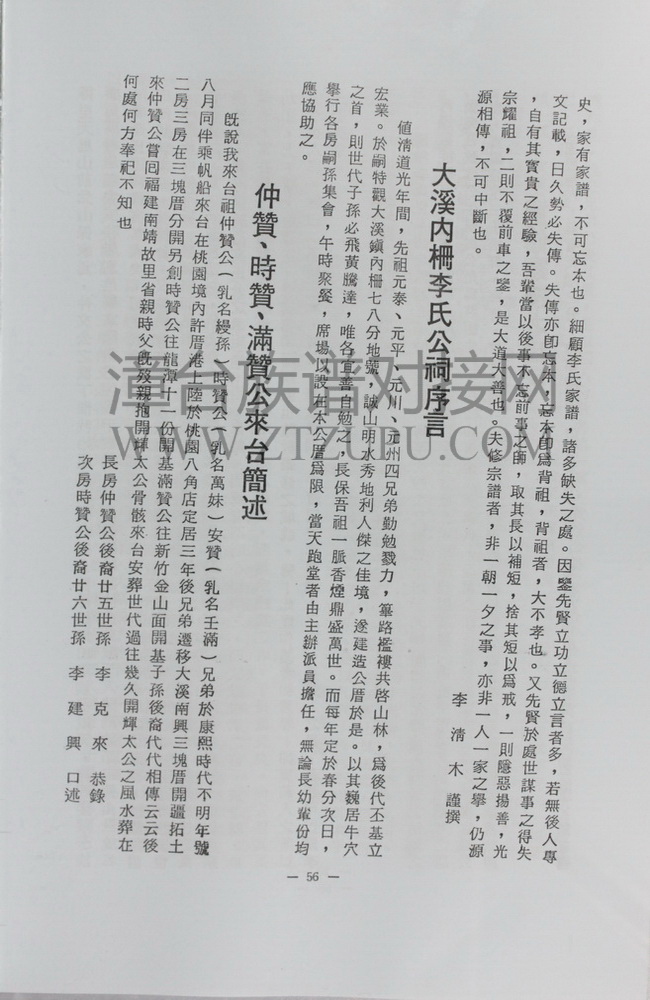 史，家有家譜，不可忘本也。細顧李氏家譜，諸多缺失之處。因鑒先賢立功立德立言者多，若無後人專
文記載，日久勢必失傳。失傳亦卽忘本，忘本卽爲背祖，背祖者，大不孝也。又先賢於處世謀事之得失
，自有其寶貴之經驗，吾輩當以後事不忘前事之師，取其長以補短，捨其短以爲戒，一則隱惡揚善，光
宗耀祖，二則不覆前車之鑒，是大道大善也。夫修宗譜者，非一朝一夕之事，亦非一人一家之擧，仍源
源相傳，不可中斷也。
李淸木 謹撰
大溪內柵李氏公祠序言
値淸道光年間，先祖元泰、元平、元川、元州四兄弟勤勉戮力，篳路襤褸共啓山林，爲後代丕基立
宏業。於嗣特觀大溪鎭內柵七八分地號，誠山明水秀地利人傑之佳境，遂建造公厝於是。以其巍居牛穴
之首，則世代子孫必飛黃騰達，唯各宜善自勉之，長保吾祖一脈香煙鼎盛萬世。而每年定於春分次日，
擧行各房嗣孫集會，午時聚餐，席場以設在本公厝爲限，當天跑堂者由主辦派員擔任，無論長幼輩份均
應協助之。
仲贊、時贊、滿贊公來台簡述
旣說我來台祖仲贊公（乳名縵孫）時贊公（乳名萬妹）安贊（乳名壬滿）兄弟於康熙時代不明年號
八月同伴乘帆船來台在桃園境內許厝港上陸於桃園八角店定居三年後兄弟遷移大溪南興三塊厝開疆拓土
二房三房在三塊厝分開另創時贊公往龍潭十一份開基滿贊公往新竹金山面開基子孫後裔代代相傳云云後
來仲贊公嘗囘福建南靖故里省親時父旣歿親抱開輝太公骨骸來台安葬世代過往幾久開輝太公之風水葬在
何處何方奉祀不知也
長房仲贊公後裔廿五世孫 李克來 恭錄
次房時贊公後裔廿六世孫 李建興 口述
— 56 —
漳台族谱对接网
WWW.ZTZUPU.COM